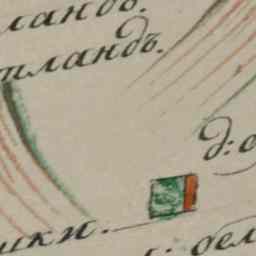 ландъ.
тландъ.
д:
шки.
: бел